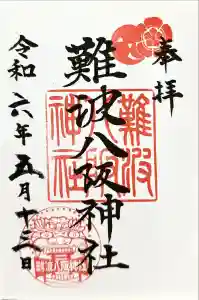 奉拝
難波八阪神社
難波
八阪
神社
令和六年五月十二日
難波八阪神社